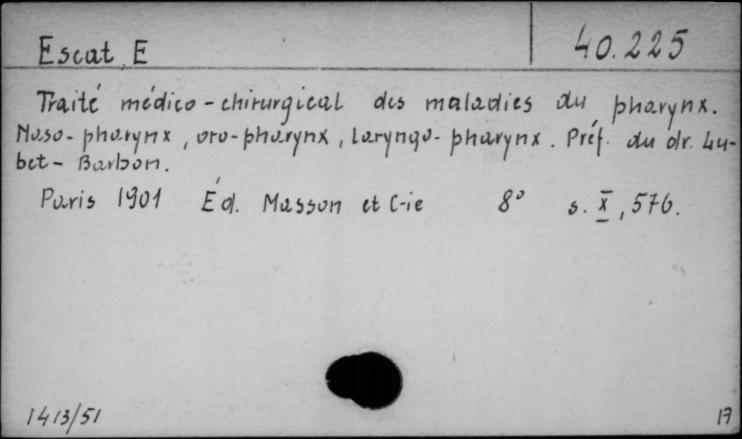 Escat, E
40.225
Traité médico-chirurgical des maladies du pharynx.
Naso-pharynx, oro-pharynx, laryngo-pharynx. Préf. du dr. Lu-
bet-Barbon.
Paris 1901 Éd. Masson et C-ie 8° s. X, 576.
1413/51
17